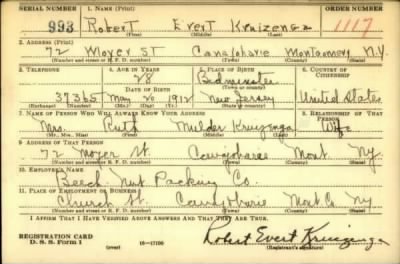 SERIAL NUMBER 1. NAME (Print) ORDER NUMBER
993 Robert Evert Kruizenga 1117
(First) (Middle) (Last)
2. ADDRESS (Print)
72 Moyer ST Canajoharie Montgomery N.Y.
(Number and street or R. F. D. number) (Town) (County) (State)
3. TELEPHONE 4. AGE IN YEARS 5. PLACE OF BIRTH 6. COUNTRY OF CITIZENSHIP
28 Bedminster
(Town or county)
37365 May 20 1912 New Jersey United States
(Exchange) (Number) (Mo.) (Day) (Yr.) (State or country)
7. NAME OF PERSON WHO WILL ALWAYS KNOW YOUR ADDRESS 8. RELATIONSHIP OF THAT PERSON
Mrs. Ruth Mulder Kruizenga Wife
(Mr., Mrs., Miss) (First) (Middle) (Last)
9. ADDRESS OF THAT PERSON
72 Moyer St. Canajoharie Mont. NY
(Number and street or R. F. D. number) (Town) (County) (State)
10. EMPLOYER'S NAME
Beech Nut Packing Co.
11. PLACE OF EMPLOYMENT OR BUSINESS
Church St. Canajoharie Mont. Co. NY
(Number and street or R. F. D. number) (Town) (County) (State)
I AFFIRM THAT I HAVE VERIFIED ABOVE ANSWERS AND THAT THEY ARE TRUE.
REGISTRATION CARD
D. S. S. Form 1 (over) 16—17105
Robert Evert Kruizenga
(Registrant's signature)